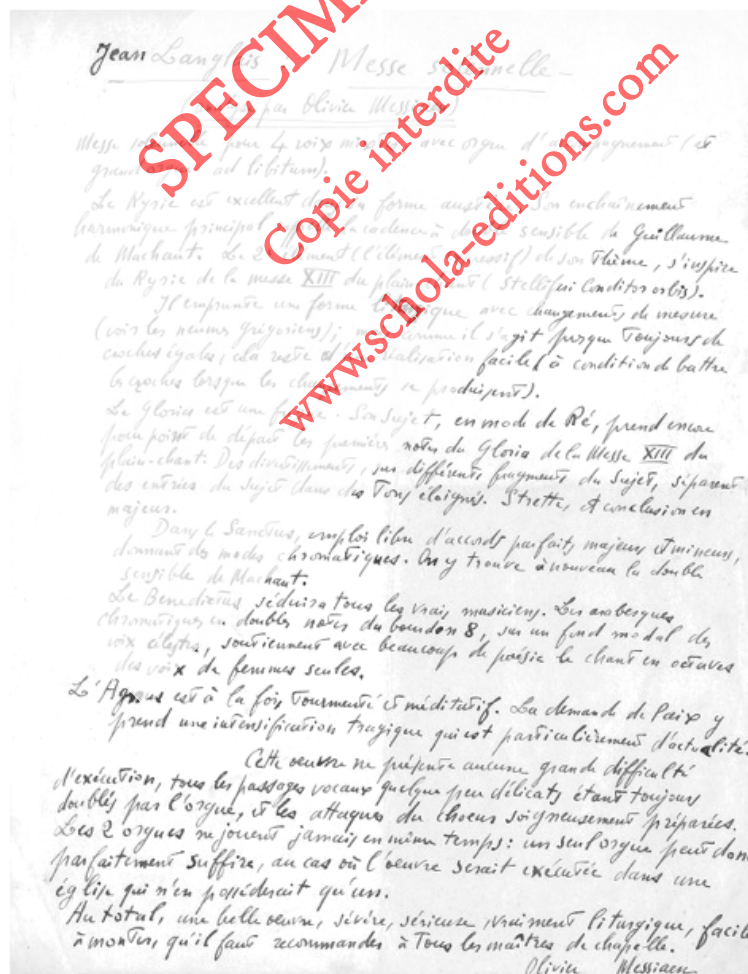 Jean Langlais Messe solennelle -
par Olivier Messiaen)
Messe solennelle pour 4 voix mixtes avec orgue d'accompagnement (et
grand orgue ad libitum).
Le Kyrie est excellent dans sa forme austère. Son enchaînement
harmonique principal la cadence à double sensible de Guillaume
de Machaut. Le 2e élément (l'élément expressif) de son Thème, s'inspire
du Kyrie de la messe XIII du plain-chant (Stelliferi Conditor orbis).
Il emprunte une forme avec changements de mesure
(voir les neumes grégoriens); mais comme il s'agit presque toujours de
croches égales, cela reste d'une réalisation facile (à condition de battre
les croches lorsque les changements se produisent).
Le Gloria est une fugue. Son Sujet, en mode de Ré, prend encore
pour point de départ les premières notes du Gloria de la Messe XIII du
plain-chant. Des divertissements, sur différents fragments du Sujet, séparent
des entrées du Sujet dans des Tons éloignés. Strette, et conclusion en
majeur.
Dans le Sanctus, emploi libre d'accords parfaits majeurs et mineurs,
donnant des modes chromatiques. On y trouve à nouveau la double
sensible de Machaut.
Le Benedictus séduira tous les vrais musiciens. Les arabesques
chromatiques en doubles notes du bourdon 8, sur un fond modal des
voix célestes, soutiennent avec beaucoup de poésie le chant en octaves
des voix de femmes seules.
L'Agnus est à la fois tourmenté et méditatif. La demande de Paix y
prend une intensification tragique qui est particulièrement d'actualité.
Cette oeuvre ne présente aucune grande difficulté
d'exécution, tous les passages vocaux quelque peu délicats étant toujours
doublés par l'orgue, et les attaques du choeur soigneusement préparées.
Les 2 orgues ne jouent jamais en même temps: un seul orgue peut donc
parfaitement suffire, au cas où l'oeuvre serait exécutée dans une
église qui n'en posséderait qu'un.
Au total, une belle oeuvre, sévère, sérieuse, vraiment liturgique, facile
à monter, qu'il faut recommander à Tous les maîtres de chapelle.
Olivier Messiaen
SPECIM
Copie interdite
www.schola-editions.com